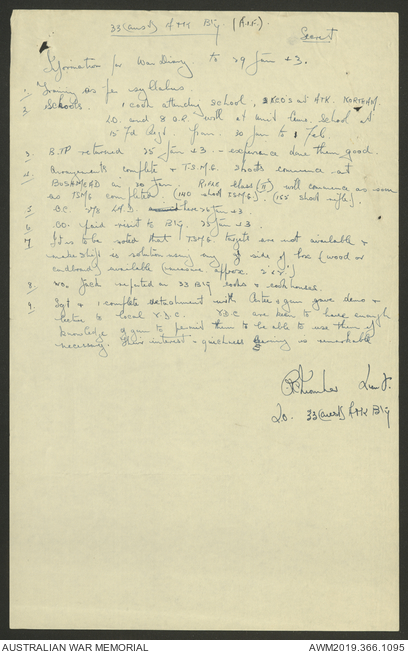 33 (Aust) A Tk Bty (A.I.F.).
Secret
Information for War Diary to 29 Jan 43.
1 Training as per syllabus.
2 Schools. 1 attending school, NORTHAM.
10 and 8 O.R. will at unit school at
15 Fd Regt. from 30 Jan to 1 Feb.
3 returned 25 Jan 43. - experience done them good.
4 Arrangements complete & T.S.M.G. shoots commence at
BUSHMEAD on 30 Jan Rifle class (II) will commence as soon
as TSMG completed. (140 shoot TSMG). (165 shoot rifle).
5 BC Jan 43.
6 CO. paid visit to Bty. 25 Jan 43.
7 It is to be noted that TSMG targets are not available &
makeshift is solution using any side of box (wood or
cardboard) available (measure approx. )
8 WO. Jack reported on 33 Bty
9 Sgt & 1 complete detachment with & gun gave demo &
lecture to local V.D.C. V.D.C. are keen to have enough
knowledge of gun to permit them to be able to use them if
necessary. Their interest & quickness is remarkable
Lieut.
I.O. 33 (Aust) A Tk Bty
AUSTRALIAN WAR MEMORIAL
AWM2019.366.1095